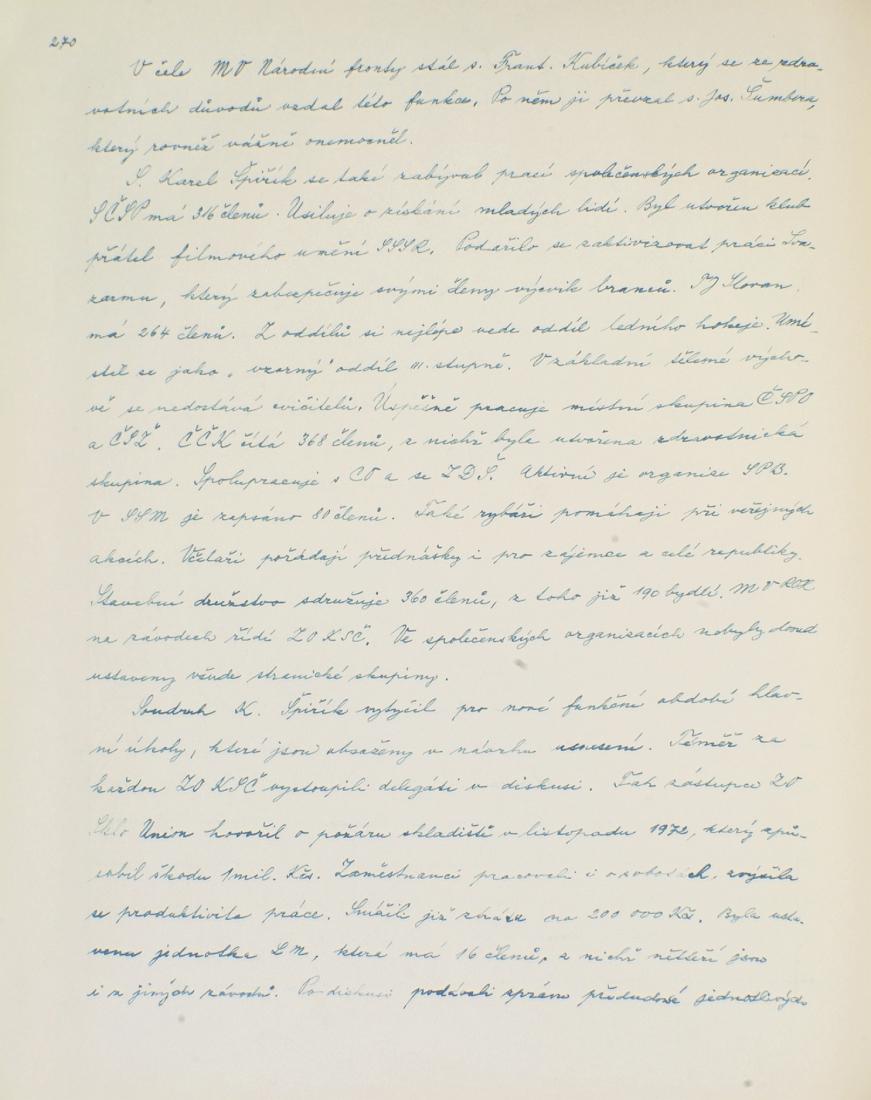 270
V čele MV Národní fronty stál s. Frant. Kubíček, který se ze zdra-
votních důvodů vzdal této funkce. Po něm ji převzal s. Jos. Šumbera,
který rovněž vážně onemocněl.
S. Karel Špiřík se také zabýval prací společenských organisací.
SČSP má 316 členů. Usiluje o získání mladých lidí. Byl utvořen klub
přátel filmového umění SSSR. Podařilo se zaktivizovat práci Sva-
zarmu, který zabezpečuje svými členy výcvik branců. TJ Slovan
má 264 členů. Z oddílů si nejlépe vede oddíl ledního hokeje. Umí-
stil se jako „vzorný" oddíl III. stupně. V základní tělesné výcho-
vě se nedostává cvičitelů. Úspěšně pracuje místní skupina ČSPO
a ČSŽ. ČČK čítá 368 členů, z nichž byla utvořena zdravotnická
skupina. Spolupracuje s CO a se ZDŠ. Aktivní je organize SPB.
V SSM je zapsáno 80 členů. Také rybáři pomáhají při veřejných
akcích. Včelaři pořádají přednášky i pro zájemce z celé republiky.
Stavební družstvo sdružuje 360 členů, z toho již 190 bydlí. MV ROH
na závodech řídí ZO KSČ. Ve společenských organisacích nebyly dosud
ustaveny všude stranické skupiny.
Soudruh K. Špiřík vytyčil pro nové funkční období hlav-
ní úkoly, které jsou obsaženy v návrhu usnesení. Téměř za
každou ZO KSČ vystoupili delegáti v diskusi. Tak zástupce ZO
Sklo Union hovořil o požáru skladiště v listopadu 1972, který způ-
sobil škodu 1 mil. Kčs. Zaměstnanci pracovali i o sobotách, zvýšila
se produktivita práce. Snížili již ztrátu na 200 000 Kčs. Byla usta-
vena jednotka LM, která má 16 členů, z nichž někteří jsou
i z jiných závodů. Po diskusi podávali zprávu předsedové jednotlivých